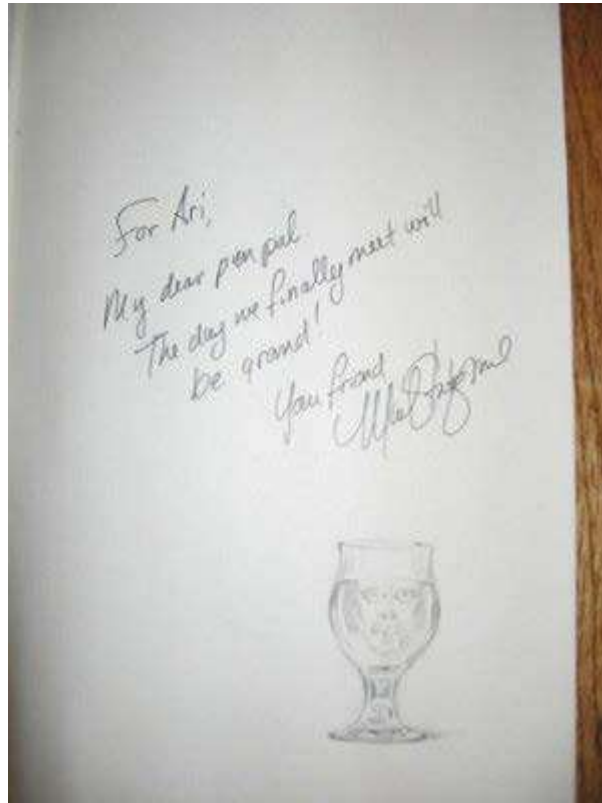 For Ari,
My dear pen pal.
The day we finally meet will
be grand!
Your friend